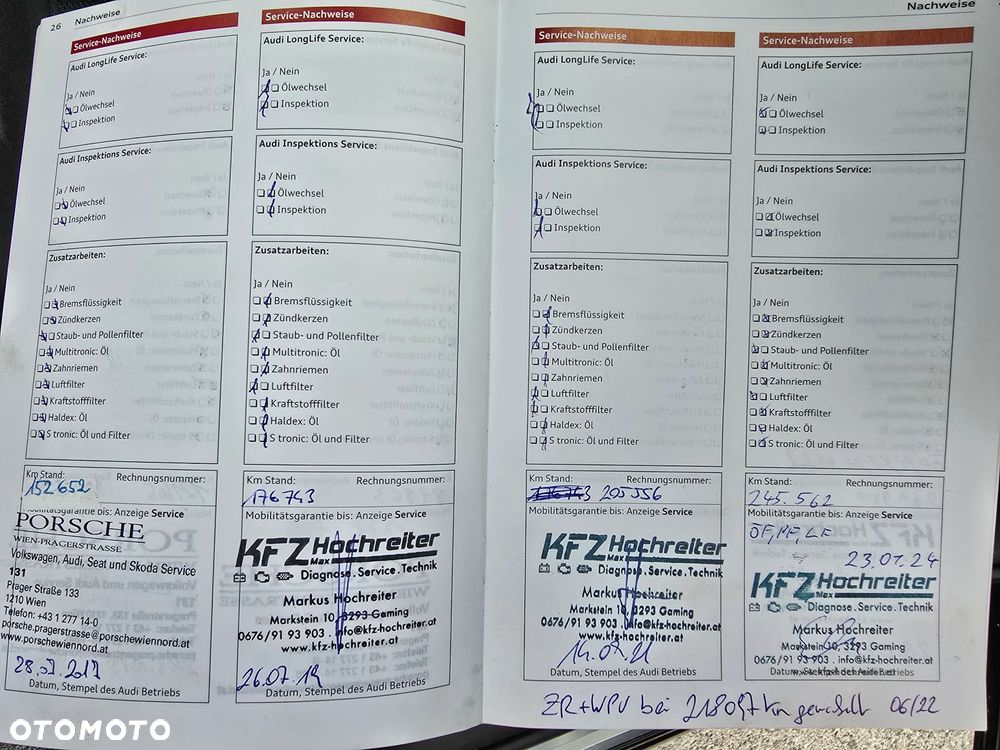 26 Nachweise
Service-Nachweise
Audi LongLife Service:
Ja / Nein
Ölwechsel
Inspektion
Audi Inspektions Service:
Ja / Nein
Ölwechsel
Inspektion
Zusatzarbeiten:
Ja / Nein
Bremsflüssigkeit
Zündkerzen
Staub- und Pollenfilter
Multitronic: Öl
Zahnriemen
Luftfilter
Kraftstofffilter
Haldex: Öl
S tronic: Öl und Filter
Km Stand: Rechnungsnummer:
152 652
Mobilitätsgarantie bis: Anzeige Service
PORSCHE
WIEN-PRAGERSTRASSE
Volkswagen, Audi, Seat und Skoda Service
131
Prager Straße 133
1210 Wien
Telefon: +43 1 277 14-0
porsche.pragerstrasse@porschewiennord.at
www.porschewiennord.at
28.07.2017
Datum, Stempel des Audi Betriebs
Service-Nachweise
Audi LongLife Service:
Ja / Nein
Ölwechsel
Inspektion
Audi Inspektions Service:
Ja / Nein
Ölwechsel
Inspektion
Zusatzarbeiten:
Ja / Nein
Bremsflüssigkeit
Zündkerzen
Staub- und Pollenfilter
Multitronic: Öl
Zahnriemen
Luftfilter
Kraftstofffilter
Haldex: Öl
S tronic: Öl und Filter
Km Stand: Rechnungsnummer:
176743
Mobilitätsgarantie bis: Anzeige Service
KFZ Max Hochreiter
Diagnose.Service.Technik
Markus Hochreiter
Markstein 10, 3293 Gaming
0676/91 93 903 . info@kfz-hochreiter.at
www.kfz-hochreiter.at
26.07.19
Datum, Stempel des Audi Betriebs
Nachweise
Service-Nachweise
Audi LongLife Service:
Ja / Nein
Ölwechsel
Inspektion
Audi Inspektions Service:
Ja / Nein
Ölwechsel
Inspektion
Zusatzarbeiten:
Ja / Nein
Bremsflüssigkeit
Zündkerzen
Staub- und Pollenfilter
Multitronic: Öl
Zahnriemen
Luftfilter
Kraftstofffilter
Haldex: Öl
S tronic: Öl und Filter
Km Stand: Rechnungsnummer:
176743 205556
Mobilitätsgarantie bis: Anzeige Service
KFZ Max Hochreiter
Diagnose.Service.Technik
Markus Hochreiter
Markstein 10, 3293 Gaming
0676/91 93 903 . info@kfz-hochreiter.at
www.kfz-hochreiter.at
14.07.21
Datum, Stempel des Audi Betriebs
Service-Nachweise
Audi LongLife Service:
Ja / Nein
Ölwechsel
Inspektion
Audi Inspektions Service:
Ja / Nein
Ölwechsel
Inspektion
Zusatzarbeiten:
Ja / Nein
Bremsflüssigkeit
Zündkerzen
Staub- und Pollenfilter
Multitronic: Öl
Zahnriemen
Luftfilter
Kraftstofffilter
Haldex: Öl
S tronic: Öl und Filter
Km Stand: Rechnungsnummer:
245.562
Mobilitätsgarantie bis: Anzeige Service
ÖF, PF, LF
23.01.24
KFZ Max Hochreiter
Diagnose.Service.Technik
Markus Hochreiter
Markstein 10, 3293 Gaming
0676/91 93 903 . info@kfz-hochreiter.at
www.kfz-hochreiter.at
Datum, Stempel des Audi Betriebs
ZR+WPU bei 218097 km gewechselt 06/22
OTOMOTO